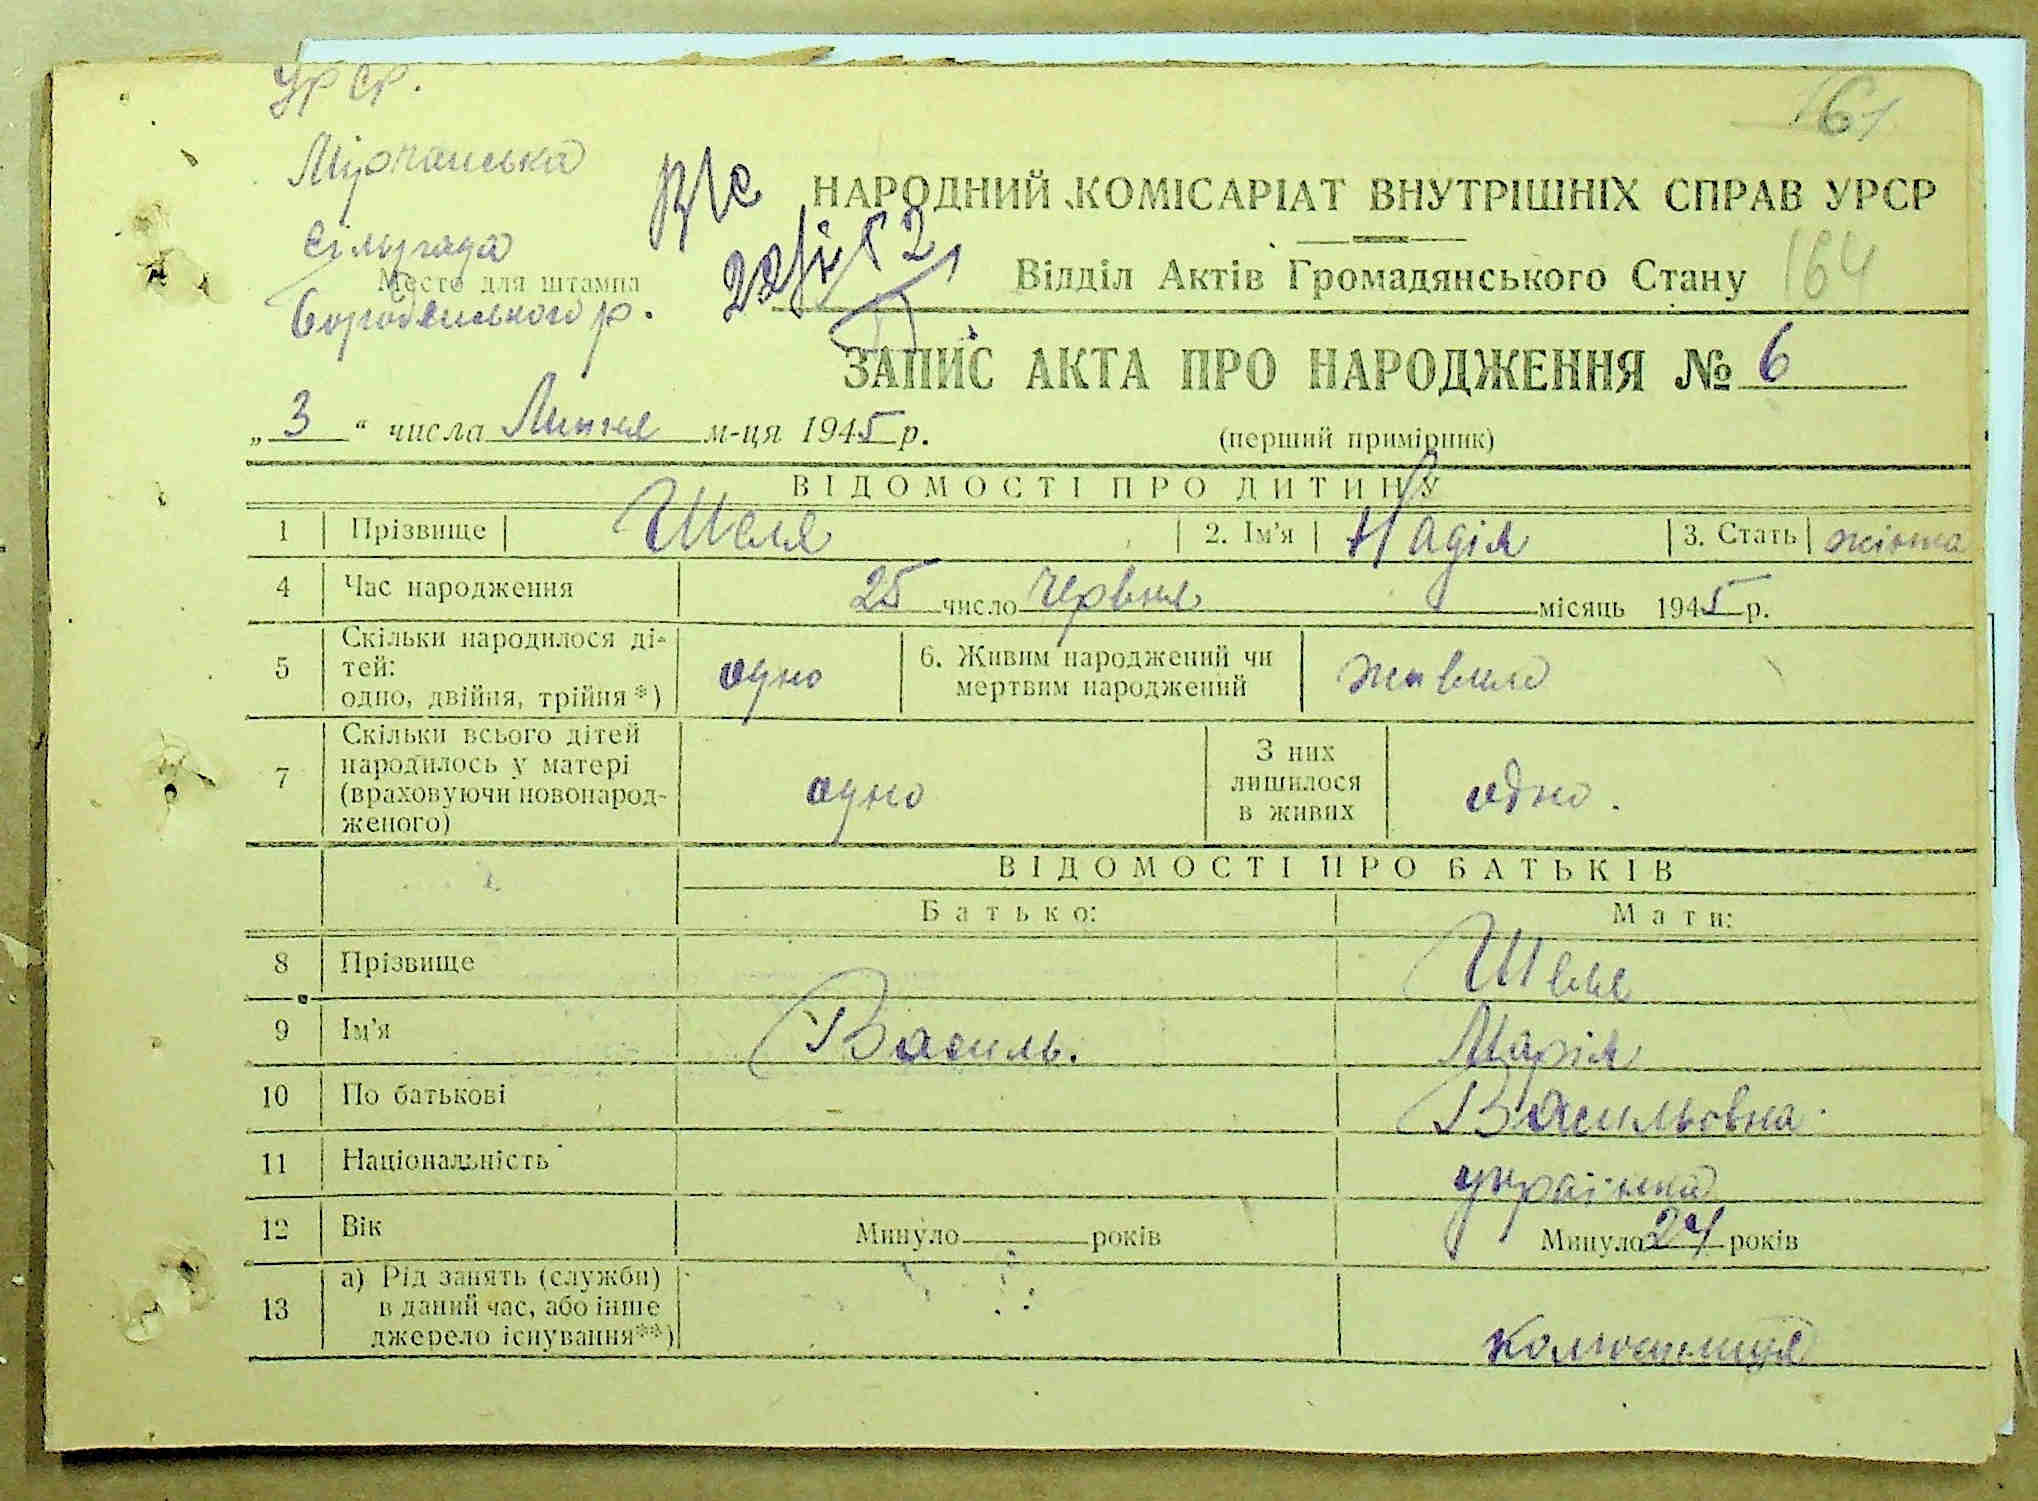 УРСР.
161
Мірчанська
НАРОДНИЙ КОМІСАРІАТ ВНУТРІШНІХ СПРАВ УРСР
сільрада
Место для штампа
Відділ Актів Громадянського Стану 164
Бородянського р.
ЗАПИС АКТА ПРО НАРОДЖЕННЯ № 6
„ 3 “ числа Липня м-ця 1945 р.
(перший примірник)
ВІДОМОСТІ ПРО ДИТИНУ
1 Прізвище Шеля 2. Ім'я Надія 3. Стать жіноча
4 Час народження 25 число червня місяць 1945 р.
5 Скільки народилося ді-
тей:
одно, двійня, трійня *) одно 6. Живим народжений чи
мертвим народжений живим
7 Скільки всього дітей
народилось у матері
(враховуючи новонарод-
женого) одно З них
лишилося
в живих одно.
ВІДОМОСТІ ПРО БАТЬКІВ
Батько: Мати:
8 Прізвище Шеля
9 Ім'я Василь. Марія
10 По батькові Васильовна
11 Національність українка
12 Вік Минуло років Минуло 24 років
13 а) Рід занять (служби)
в даний час, або інше
джерело існування**) колгоспниця